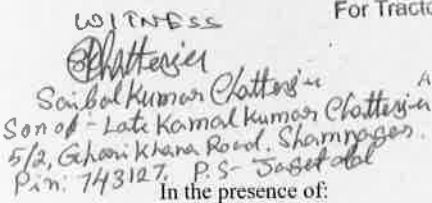 WITNESS
For Tracto
Chatterjee
Saibal Kumar Chatterjee
Son of - Late Kamal Kumar Chatterjee
5/2, Road. Shamnagar.
Pin: 743127. P.S- Jagatdal
In the presence of: